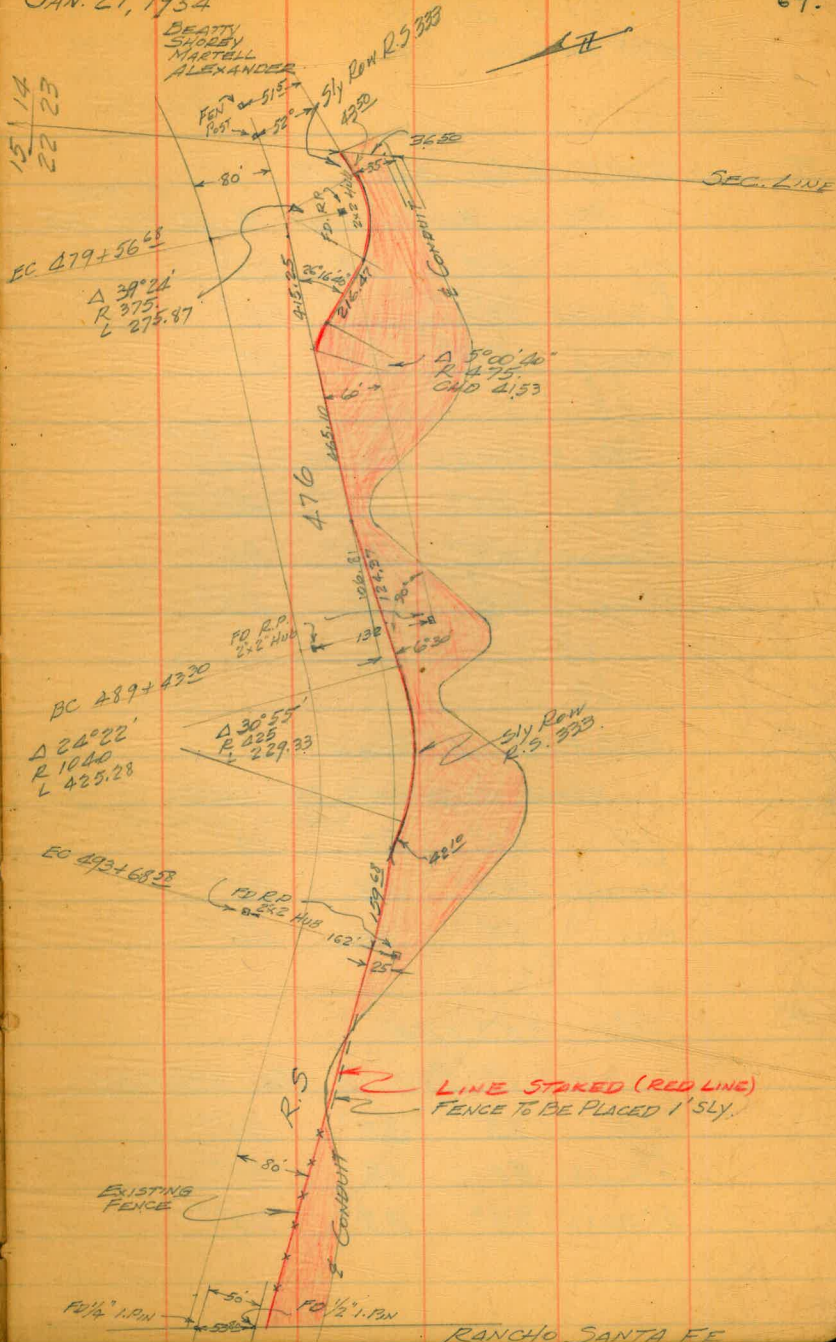 JAN. 27, 1934
BEATTY
SHOREY
MARTELL
ALEXANDER
Sly Row R.S 333
15 14
22 23
FEN
POST
51⁵
52⁰
43⁵⁰
36⁵⁰
35'
80'
SEC. LINE
FD. R.P.
2x2 HUB
EC 479+56⁶⁸
Δ 39°24'
R 375.
L 275.87
415.25
26°16'40"
216.47
₵ CONDUIT
Δ 5°00'40"
R 475.
CHD 41.53
465.10
476
106.81
124.37
FD R.P.
2x2" HUB
6°30'
BC 489+43³⁰
Δ 24°22'
R 1040
L 425.28
Δ 30°55'
R 425
L 229.33
Sly Row
R.S. 333.
EC 493+68⁵⁸
42¹⁰
159.68
FD R.P.
2x2 HUB
162'
25
R.S
LINE STAKED (RED LINE)
FENCE TO BE PLACED 1' SLY.
80'
EXISTING
FENCE
₵ CONDUIT
50'
FD 1/4" I. PIN
FD 1/2" I. PIN
RANCHO SANTA FE